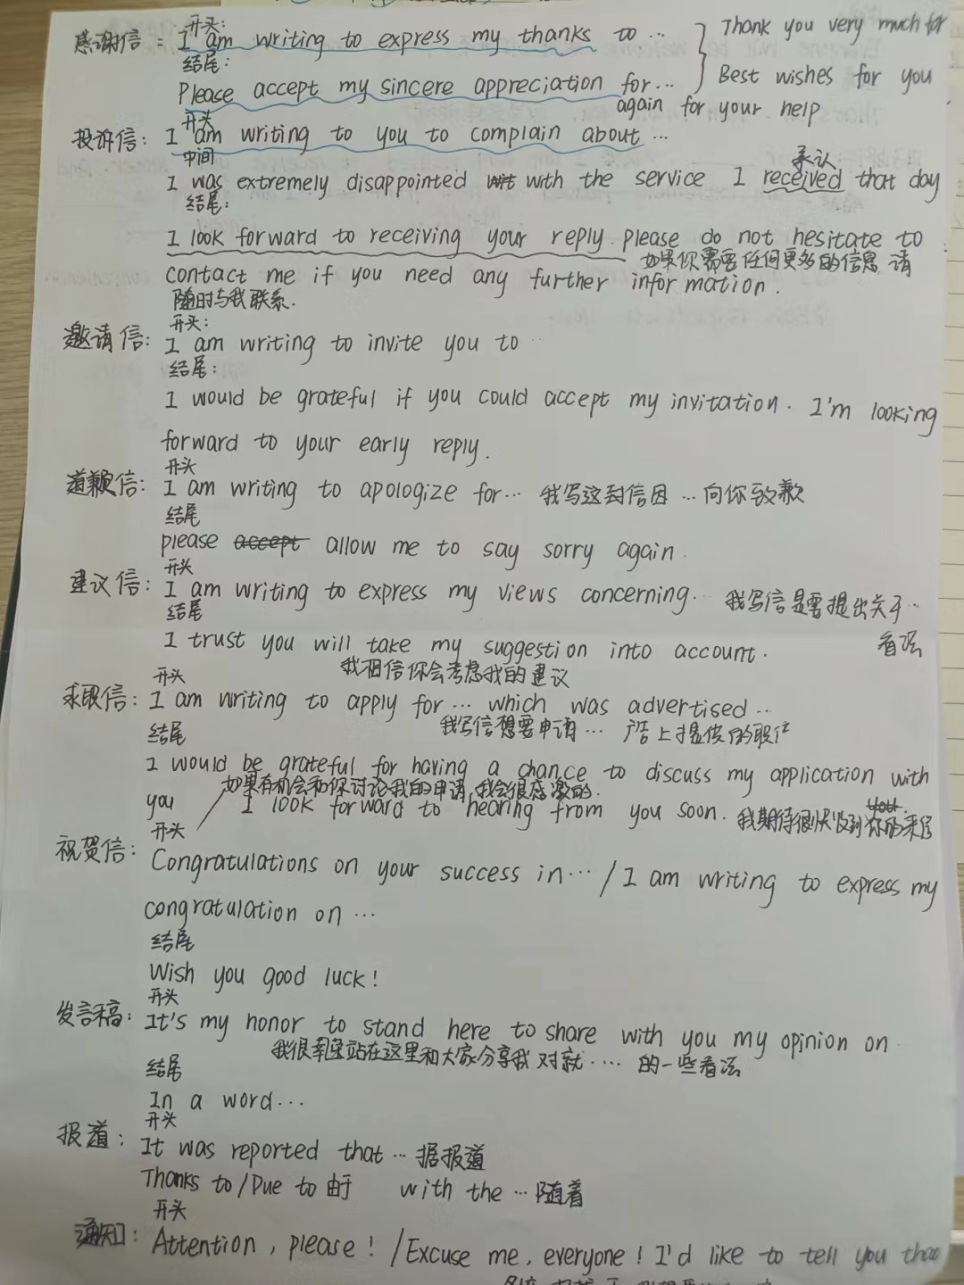 开头:
感谢信: I am writing to express my thanks to... Thank you very much for
结尾:
Please accept my sincere appreciation for... Best wishes for you
again for your help
开头
投诉信: I am writing to you to complain about...
中间 承认
I was extremely disappointed with the service I received that day
结尾:
I look forward to receiving your reply. please do not hesitate to
如果你需要任何更多的信息, 请
contact me if you need any further information.
随时与我联系.
开头:
邀请信: I am writing to invite you to
结尾:
I would be grateful if you could accept my invitation. I'm looking
forward to your early reply.
开头
道歉信: I am writing to apologize for... 我写这封信因...向你致歉
结尾
please accept allow me to say sorry again.
开头
建议信: I am writing to express my views concerning. 我写信是要提出关于..
结尾 看法
I trust you will take my suggestion into account.
我相信你会考虑我的建议
开头
求职信: I am writing to apply for... which was advertised..
我写信想要申请... 广告上提供的职位
结尾
I would be grateful for having a chance to discuss my application with
如果有机会和你讨论我的申请,我会很感激的.
you I look forward to hearing from you soon. 我期待很快收到你的来信
开头
祝贺信: Congratulations on your success in... / I am writing to express my
congratulation on...
结尾
Wish you good luck!
开头
发言稿: It's my honor to stand here to share with you my opinion on
我很荣幸站在这里和大家分享我对就.... 的一些看法
结尾
In a word...
开头
报道: It was reported that... 据报道
Thanks to/Due to 由于 with the... 随着
开头
通知: Attention, please! /Excuse me, everyone! I'd like to tell you that